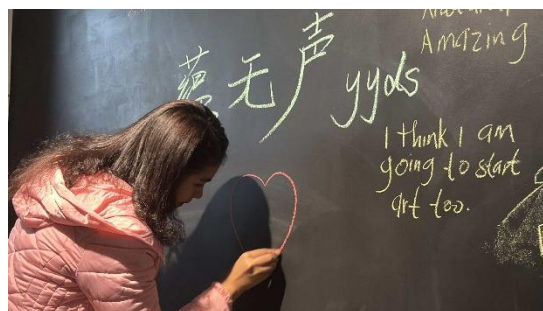 蕴无声yyds
Amazing
I think I am
going to start
art too.